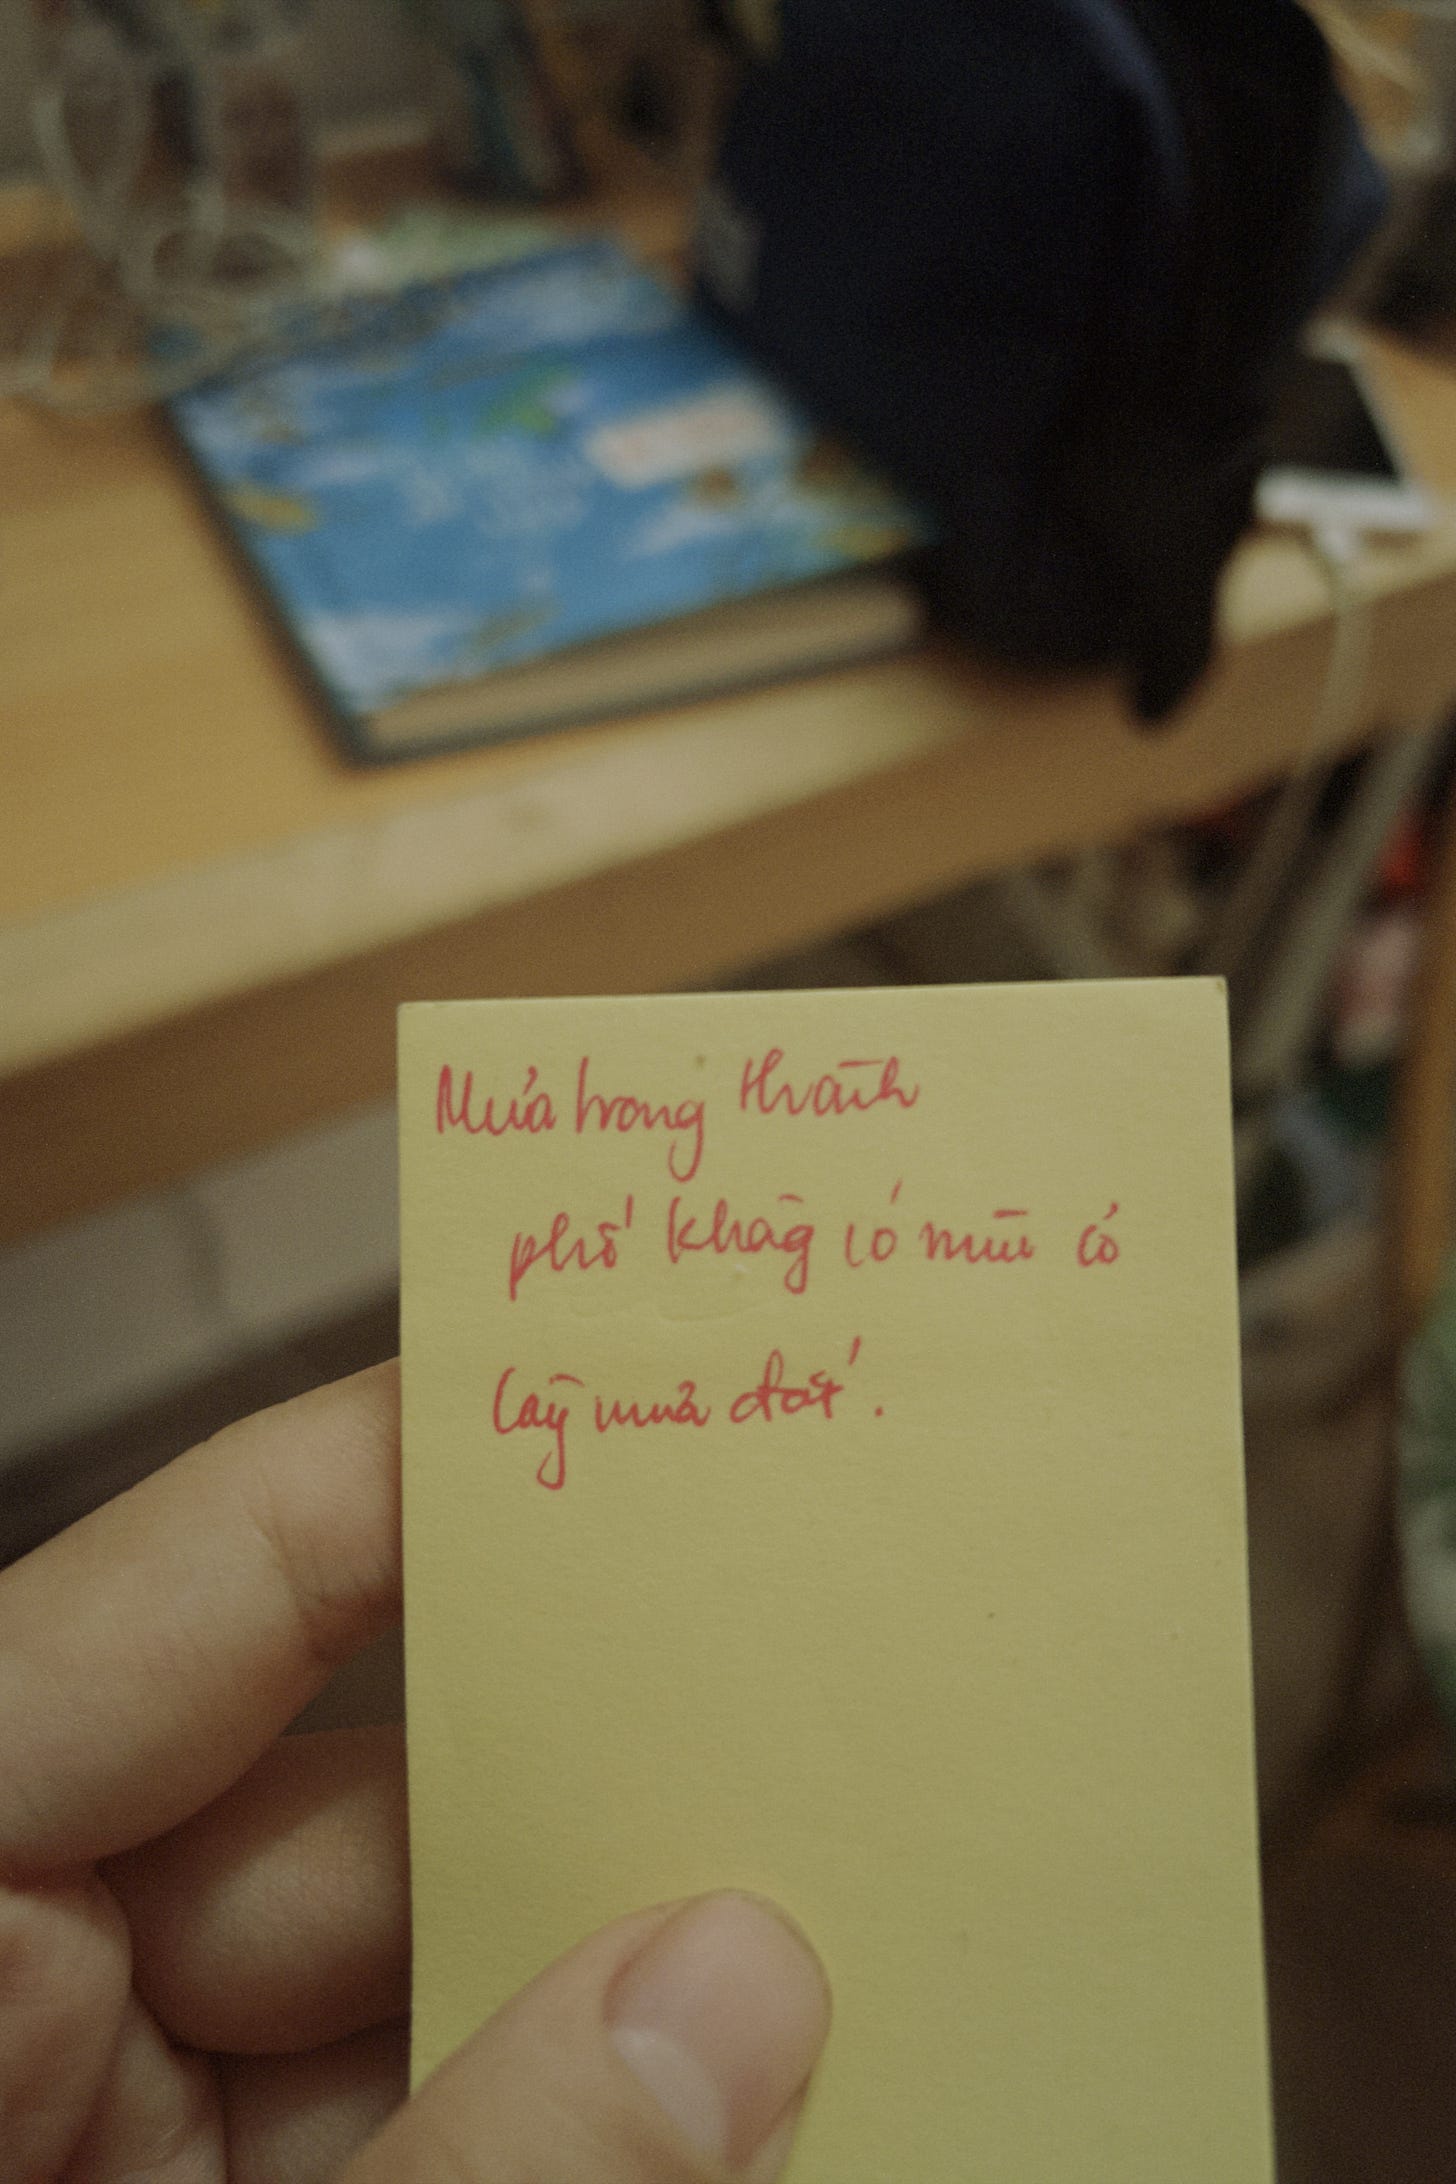 Mưa trong thành
phố không có mùi cỏ
cây mùa đất.